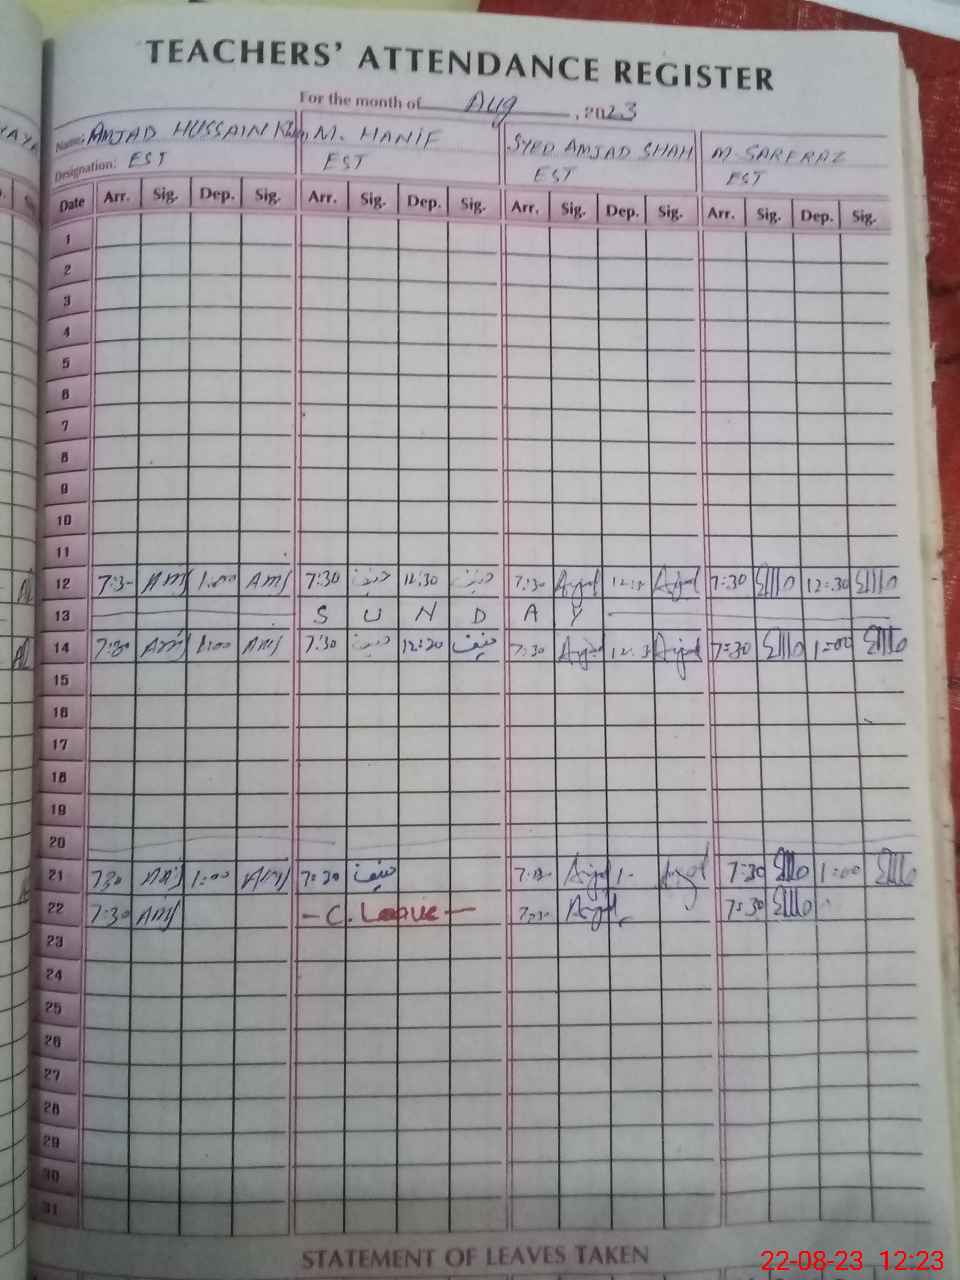 TEACHERS' ATTENDANCE REGISTER
For the month of Aug, 2023
Name: AMJAD HUSSAIN Khan M. HANIF SYED AMJAD SHAH M. SARFRAZ
Designation: EST EST EST EST
Date Arr. Sig. Dep. Sig. Arr. Sig. Dep. Sig. Arr. Sig. Dep. Sig. Arr. Sig. Dep. Sig.
1
2
3
4
5
6
7
8
9
10
11
12 7:3- Amj 1:00 Amj 7:30 حنیف 12:30 حنیف 7:30 Amjad 12:3 Amjad 7:30 12:30
13 S U N D A Y
14 7:30 Amj 1:00 Amj 7:30 حنیف 12:30 حنیف 7:30 Amjad 12:3 Amjad 7:30 1:00
15
16
17
18
19
20
21 7:30 Amj 1:00 Amj 7:30 حنیف 7:30 Amjad 1- Amjad 7:30 1:00
22 7:30 Amj - C. Leave - 7:30 Amjad 7:30
23
24
25
26
27
28
29
30
31
STATEMENT OF LEAVES TAKEN
22-08-23 12:23